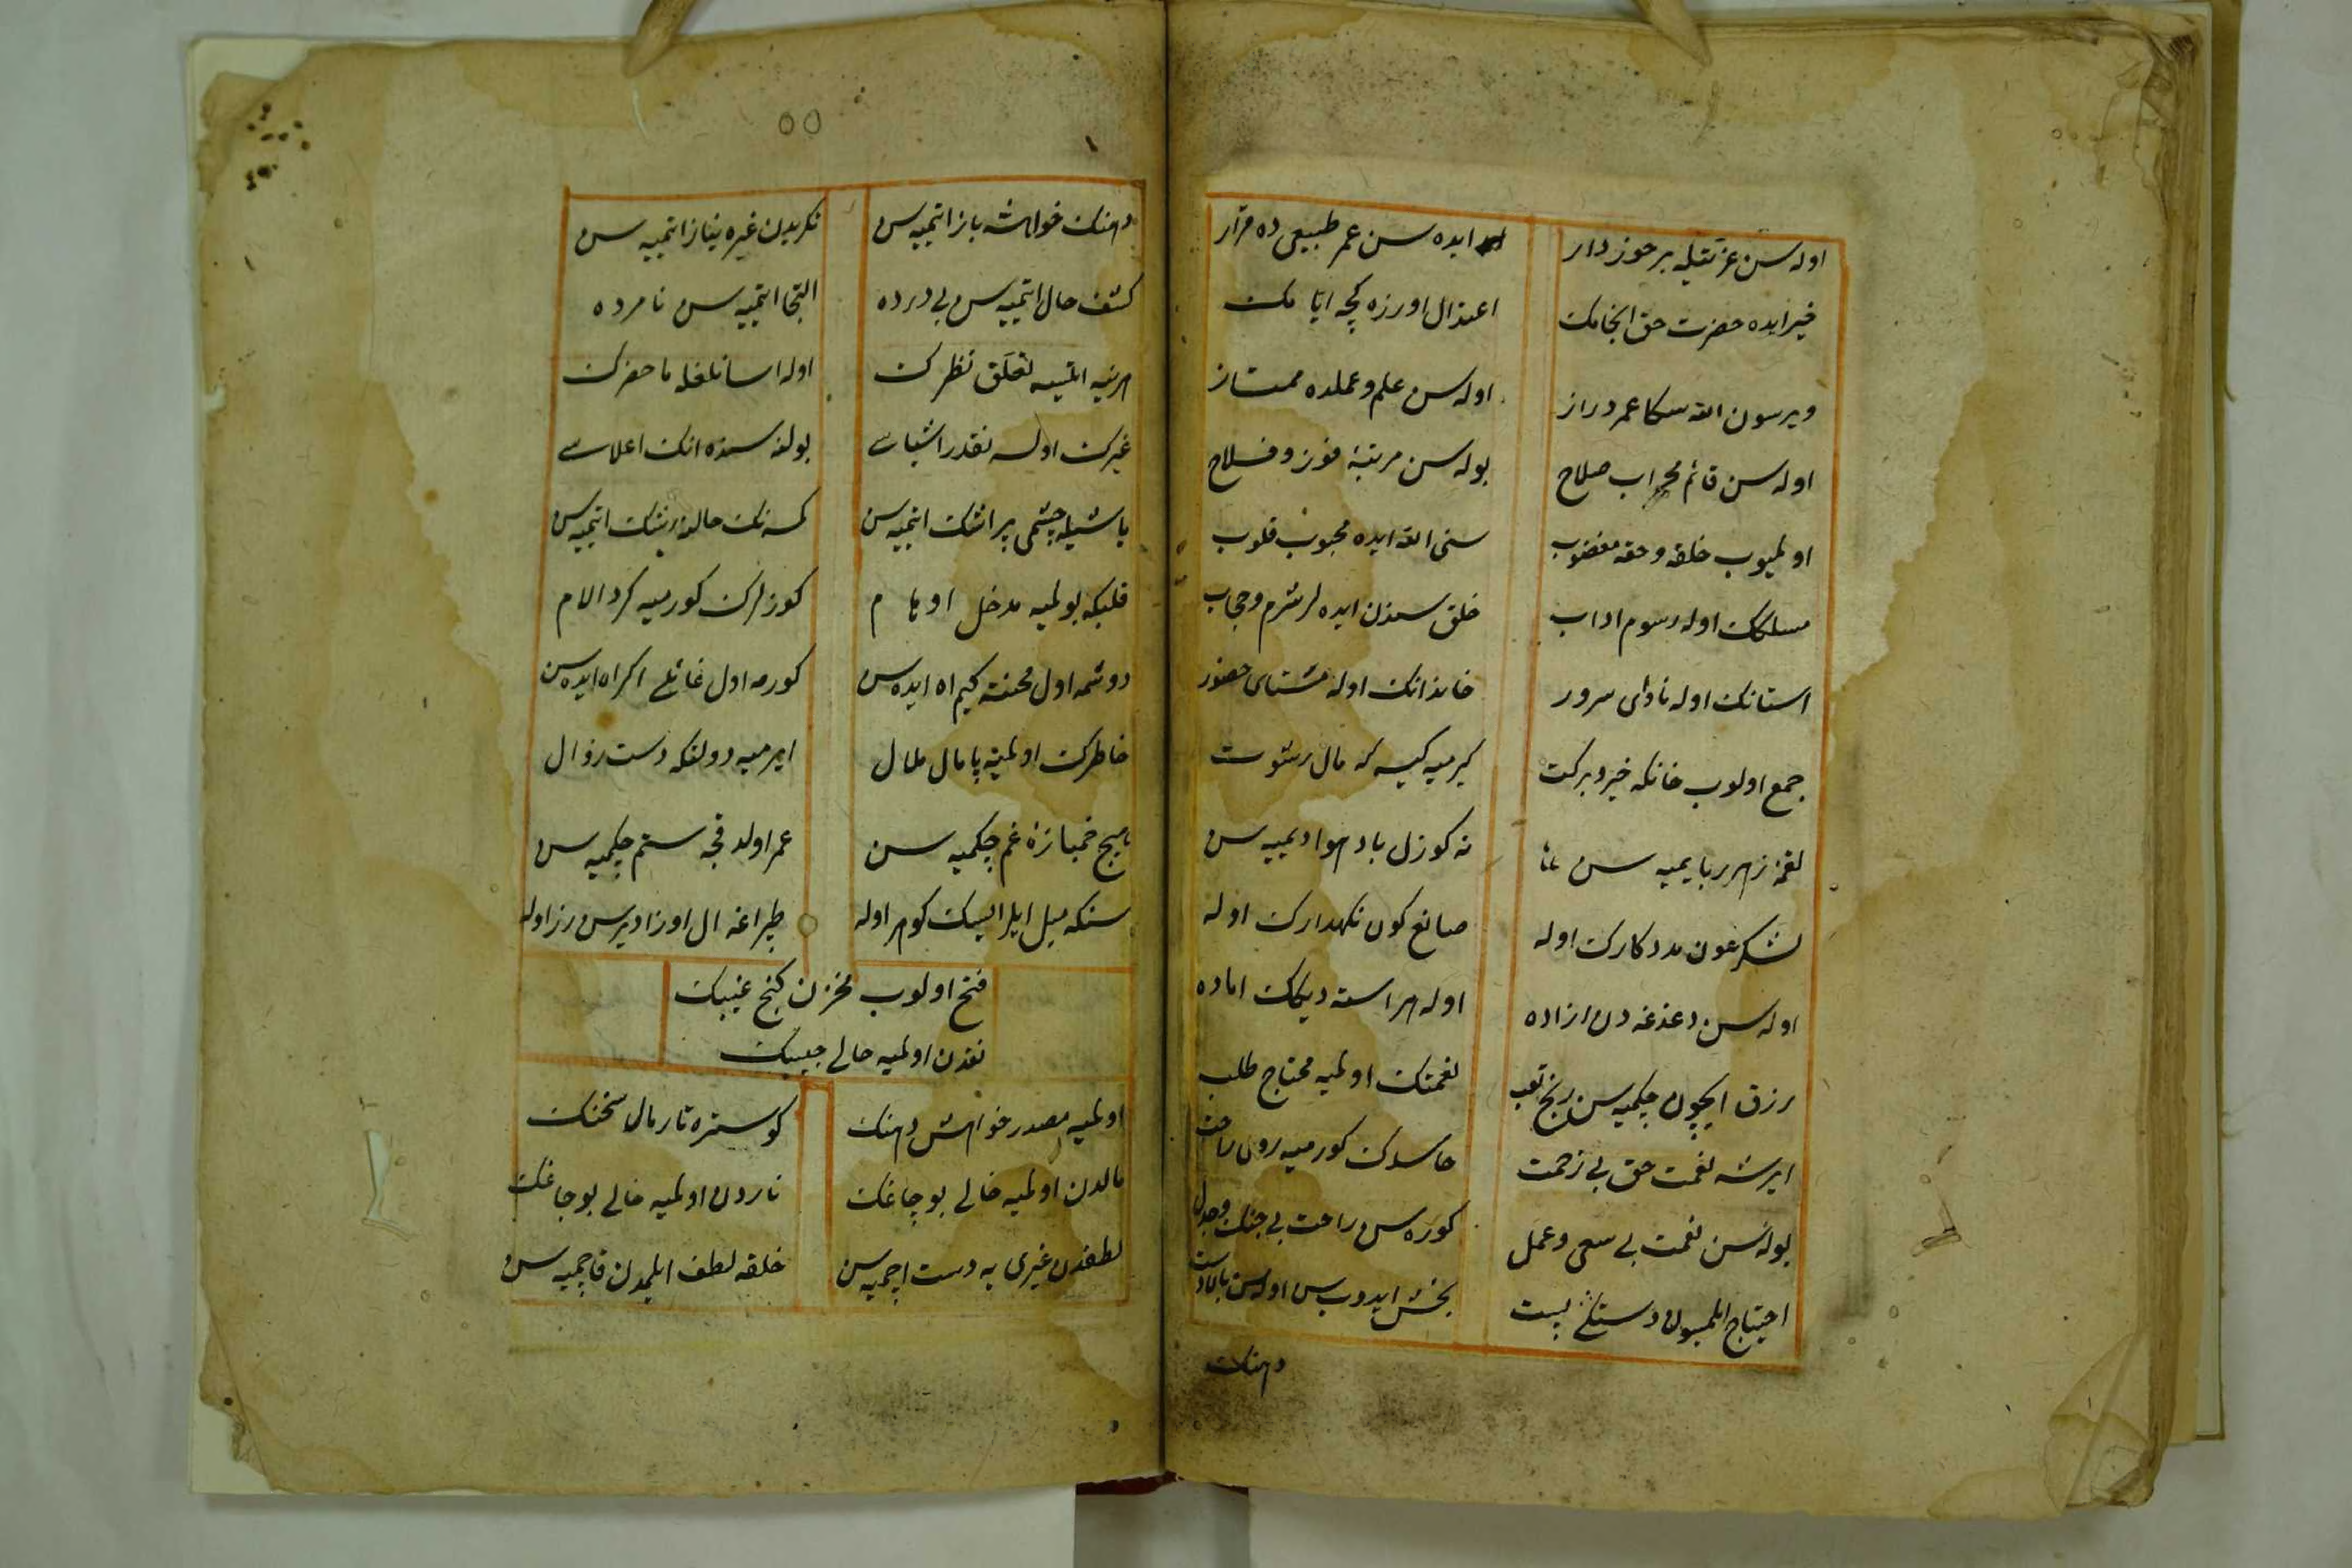 اوله سن عزتيله برخوردار ايده سن عمر طبيعى ده قرار
خير ايده حضرت حق انجامك اعتدال اوزره كچه ايامك
ويرسون الله سكا عمر دراز اوله سن علم وعملده ممتاز
اوله سن قائم محراب صلاح بوله سن مرتبۀ فوز وفلاح
اولميوب خلقه وحقه مغضوب سنى الله ايده محبوب قلوب
مسلكك اوله رسوم اداب خلق سندن ايده لر شرم وحجاب
استانك اوله ناواى سرور خاندانك اوله مشتاى حضور
جمع اولوب خانكه خير وبركت كيرميه كيسه كه مال رشوت
لقمۀ زهر ربا يميه سن نه كوزل باد هوا ديميه سن
لشكر عون مددكارك اوله صانع كون نكهدارك اوله
اوله سن دغدغه دن ازاده اوله هر استه ديكك اماده
رزق ايچون چكميه سن رنج تعب نعمتك اولميه محتاج طلب
ايرشه نعمت حق بى زحمت حاسدك كورميه روى راحت
بوله سن نعمت بى سعى وعمل كوره سن راحت بى جنك وجدل
احتياج ايلمسون دستكى پست بخش ايدوب سن اوله سن بالادست
دهنك
٥٥
دهنك خواهشه باز ايتميه سن تكريدن غيره نياز ايتميه سن
كشف حال ايتميه سن بى درده التجا ايتميه سن نامرده
هر نيه ايتميه تعلق نظرك اوله اسانلغله ماحضرك
غيرك اولسه نقدر اشياسى بولنه سنده انك اعلاسى
ياشيله چشمى پر اشك ايتميه سن كمسه نك حالنه رشك ايتميه سن
قلبكه بولميه مدخل اوهام كوزلرك كورميه كرد الام
دوشمه اول محنته كيم اه ايده سن كورمه اول غائله اكراه ايده سن
خاطرك اولميه پامال ملال ايرميه دولتكه دست زوال
هيچ خميازۀ غم چكميه سن عمر اولدقجه ستم چكميه سن
سنكه ميل ايلر ايسك كوهر اوله طپراغه ال اوزاديرسن زر اوله
فتح اولوب مخزن كنج غيبك
نقدن اولميه خالى جيبك
اولميه مصدر خواهش دهنك كوستره تار مال سخنك
مالدن اولميه خالى بوجاغك ناردن اولميه خالى بوجاغك
لطفدن غيرى يه دست اچميه سن خلقه لطف ايلمدن قاچميه سن